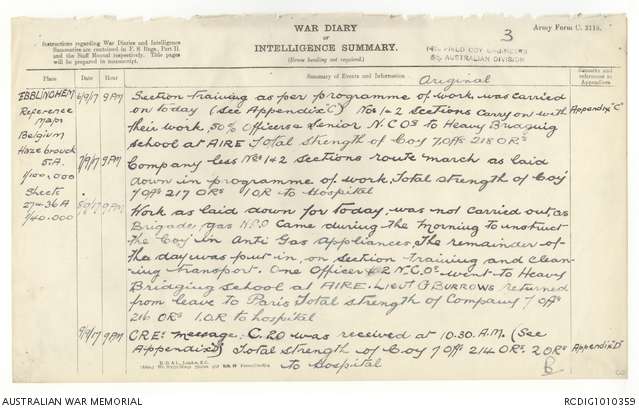 WAR DIARY
or
INTELLIGENCE SUMMARY.
(Erase heading not required).
Army Form C. 2118.
3
Instructions regarding War Diaries and Intelligence
Summaries are contained in F. S. Regs., Part II.
and the Staff Manual respectively. Title pages
will be prepared in manuscript.
14th FIELD COY ENGINEERS
5th AUSTRALIAN DIVISION
Original
Place Date Hour Summary of Events and Information Remarks and references to Appendices
EBBLINGHEM 6/9/17 9PM Section training as per programme of work, was carried
Reference on today (See Appendix "C") Nos 1+2 Sections carry on with Appendix "C"
Maps their work, 50% Officers & Senior N.C.Os to Heavy Bridging
Belgium school at AIRE Total strength of Coy 7 Offs 218 ORs
Hazebrouck 7/9/17 9PM Company less Nos 1+2 Sections route march as laid
5A. down in programme of work. Total strength of Coy
1/100,000 7 Offs 217 ORs 1 OR to Hospital
Sheets 8/9/17 9PM Work as laid down for today, was not carried out, as
27+36A Brigade, gas N.C.O came during the morning to instruct
1/40,000 the Coy in Anti Gas Appliances, The remainder of
the day was put in, on section training and clean-
ing transport. One Officer + 2 N.C.Os went to Heavy
Bridging school at AIRE. Lieut G BURROWS returned
from leave to Paris Total strength of Company 7 Offs
216 ORs 1 OR to hospital
9/9/17 9PM CREs message C.20 was received at 10.30. A.M. (See
Appendix "D") Total strength of Coy 7 Offs 214 ORs. 2 ORs Appendix "D"
to Hospital
AUSTRALIAN WAR MEMORIAL
RCDIG1010359